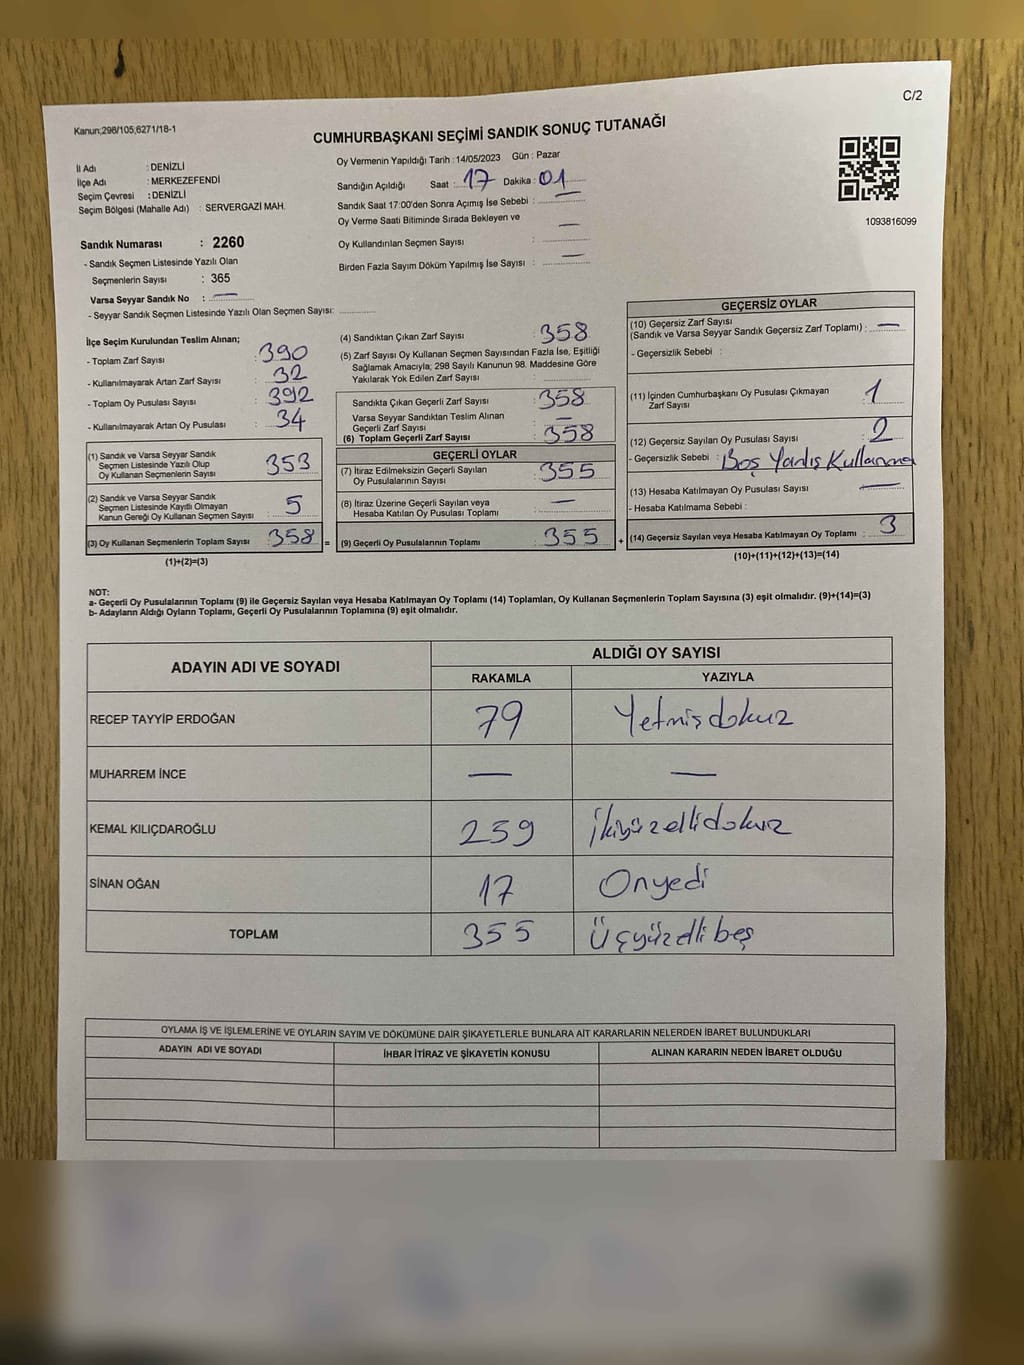 C/2
Kanun;298/105,6271/18-1
CUMHURBAŞKANI SEÇİMİ SANDIK SONUÇ TUTANAĞI
İl Adı : DENİZLİ
İlçe Adı : MERKEZEFENDİ
Seçim Çevresi : DENİZLİ
Seçim Bölgesi (Mahalle Adı) : SERVERGAZİ MAH.
Oy Vermenin Yapıldığı Tarih : 14/05/2023 Gün : Pazar
Sandığın Açıldığı Saat : 17 Dakika : 01
Sandık Saat 17:00'den Sonra Açımış İse Sebebi : —
Oy Verme Saati Bitiminde Sırada Bekleyen ve —
Oy Kullandırılan Seçmen Sayısı :
Birden Fazla Sayım Döküm Yapılmış İse Sayısı : —
1093816099
Sandık Numarası : 2260
- Sandık Seçmen Listesinde Yazılı Olan
Seçmenlerin Sayısı : 365
Varsa Seyyar Sandık No : —
- Seyyar Sandık Seçmen Listesinde Yazılı Olan Seçmen Sayısı:
İlçe Seçim Kurulundan Teslim Alınan;
- Toplam Zarf Sayısı : 390
- Kullanılmayarak Artan Zarf Sayısı : 32
- Toplam Oy Pusulası Sayısı : 392
- Kullanılmayarak Artan Oy Pusulası : 34
(1) Sandık ve Varsa Seyyar Sandık
Seçmen Listesinde Yazılı Olup
Oy Kullanan Seçmenlerin Sayısı : 353
(2) Sandık ve Varsa Seyyar Sandık
Seçmen Listesinde Kayıtlı Olmayan
Kanun Gereği Oy Kullanan Seçmen Sayısı : 5
(3) Oy Kullanan Seçmenlerin Toplam Sayısı : 358 =
(1)+(2)=(3)
(4) Sandıktan Çıkan Zarf Sayısı : 358
(5) Zarf Sayısı Oy Kullanan Seçmen Sayısından Fazla İse, Eşitliği
Sağlamak Amacıyla; 298 Sayılı Kanunun 98. Maddesine Göre
Yakılarak Yok Edilen Zarf Sayısı :
Sandıkta Çıkan Geçerli Zarf Sayısı : 358
Varsa Seyyar Sandıktan Teslim Alınan
Geçerli Zarf Sayısı : —
(6) Toplam Geçerli Zarf Sayısı : 358
GEÇERLİ OYLAR
(7) İtiraz Edilmeksizin Geçerli Sayılan
Oy Pusulalarının Sayısı : 355
(8) İtiraz Üzerine Geçerli Sayılan veya
Hesaba Katılan Oy Pusulası Toplamı : —
(9) Geçerli Oy Pusulalarının Toplamı : 355 +
GEÇERSİZ OYLAR
(10) Geçersiz Zarf Sayısı
(Sandık ve Varsa Seyyar Sandık Geçersiz Zarf Toplamı) : —
- Geçersizlik Sebebi :
(11) İçinden Cumhurbaşkanı Oy Pusulası Çıkmayan
Zarf Sayısı : 1
(12) Geçersiz Sayılan Oy Pusulası Sayısı : 2
- Geçersizlik Sebebi : Boş Yanlış Kullanma
(13) Hesaba Katılmayan Oy Pusulası Sayısı : —
- Hesaba Katılmama Sebebi :
(14) Geçersiz Sayılan veya Hesaba Katılmayan Oy Toplamı : 3
(10)+(11)+(12)+(13)=(14)
NOT:
a- Geçerli Oy Pusulalarının Toplamı (9) ile Geçersiz Sayılan veya Hesaba Katılmayan Oy Toplamı (14) Toplamları, Oy Kullanan Seçmenlerin Toplam Sayısına (3) eşit olmalıdır. (9)+(14)=(3)
b- Adayların Aldığı Oyların Toplamı, Geçerli Oy Pusulalarının Toplamına (9) eşit olmalıdır.
ADAYIN ADI VE SOYADI
ALDIĞI OY SAYISI
RAKAMLA YAZIYLA
RECEP TAYYİP ERDOĞAN 79 Yetmişdokuz
MUHARREM İNCE — —
KEMAL KILIÇDAROĞLU 259 İkiyüzellidokuz
SİNAN OĞAN 17 Onyedi
TOPLAM 355 Üçyüzellibeş
OYLAMA İŞ VE İŞLEMLERİNE VE OYLARIN SAYIM VE DÖKÜMÜNE DAİR ŞİKAYETLERLE BUNLARA AİT KARARLARIN NELERDEN İBARET BULUNDUKLARI
ADAYIN ADI VE SOYADI İHBAR İTİRAZ VE ŞİKAYETİN KONUSU ALINAN KARARIN NEDEN İBARET OLDUĞU